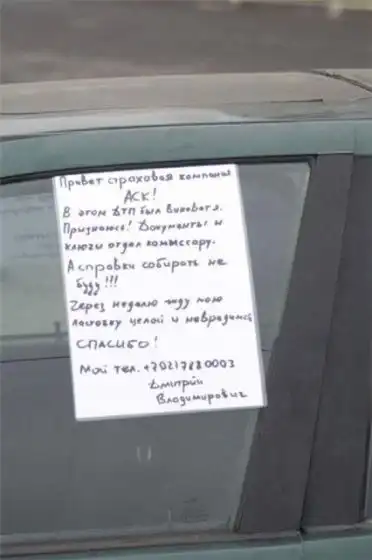 Привет страховая компания
АСК!
В этом ДТП был виноват я.
Признаюсь! Документы и
ключи отдал комиссару.
А справки собирать не
буду!!!
Через неделю жду мою
ласточку целой и невредимой
СПАСИБО!
Мой тел. +79217880003
Дмитрий
Владимирович